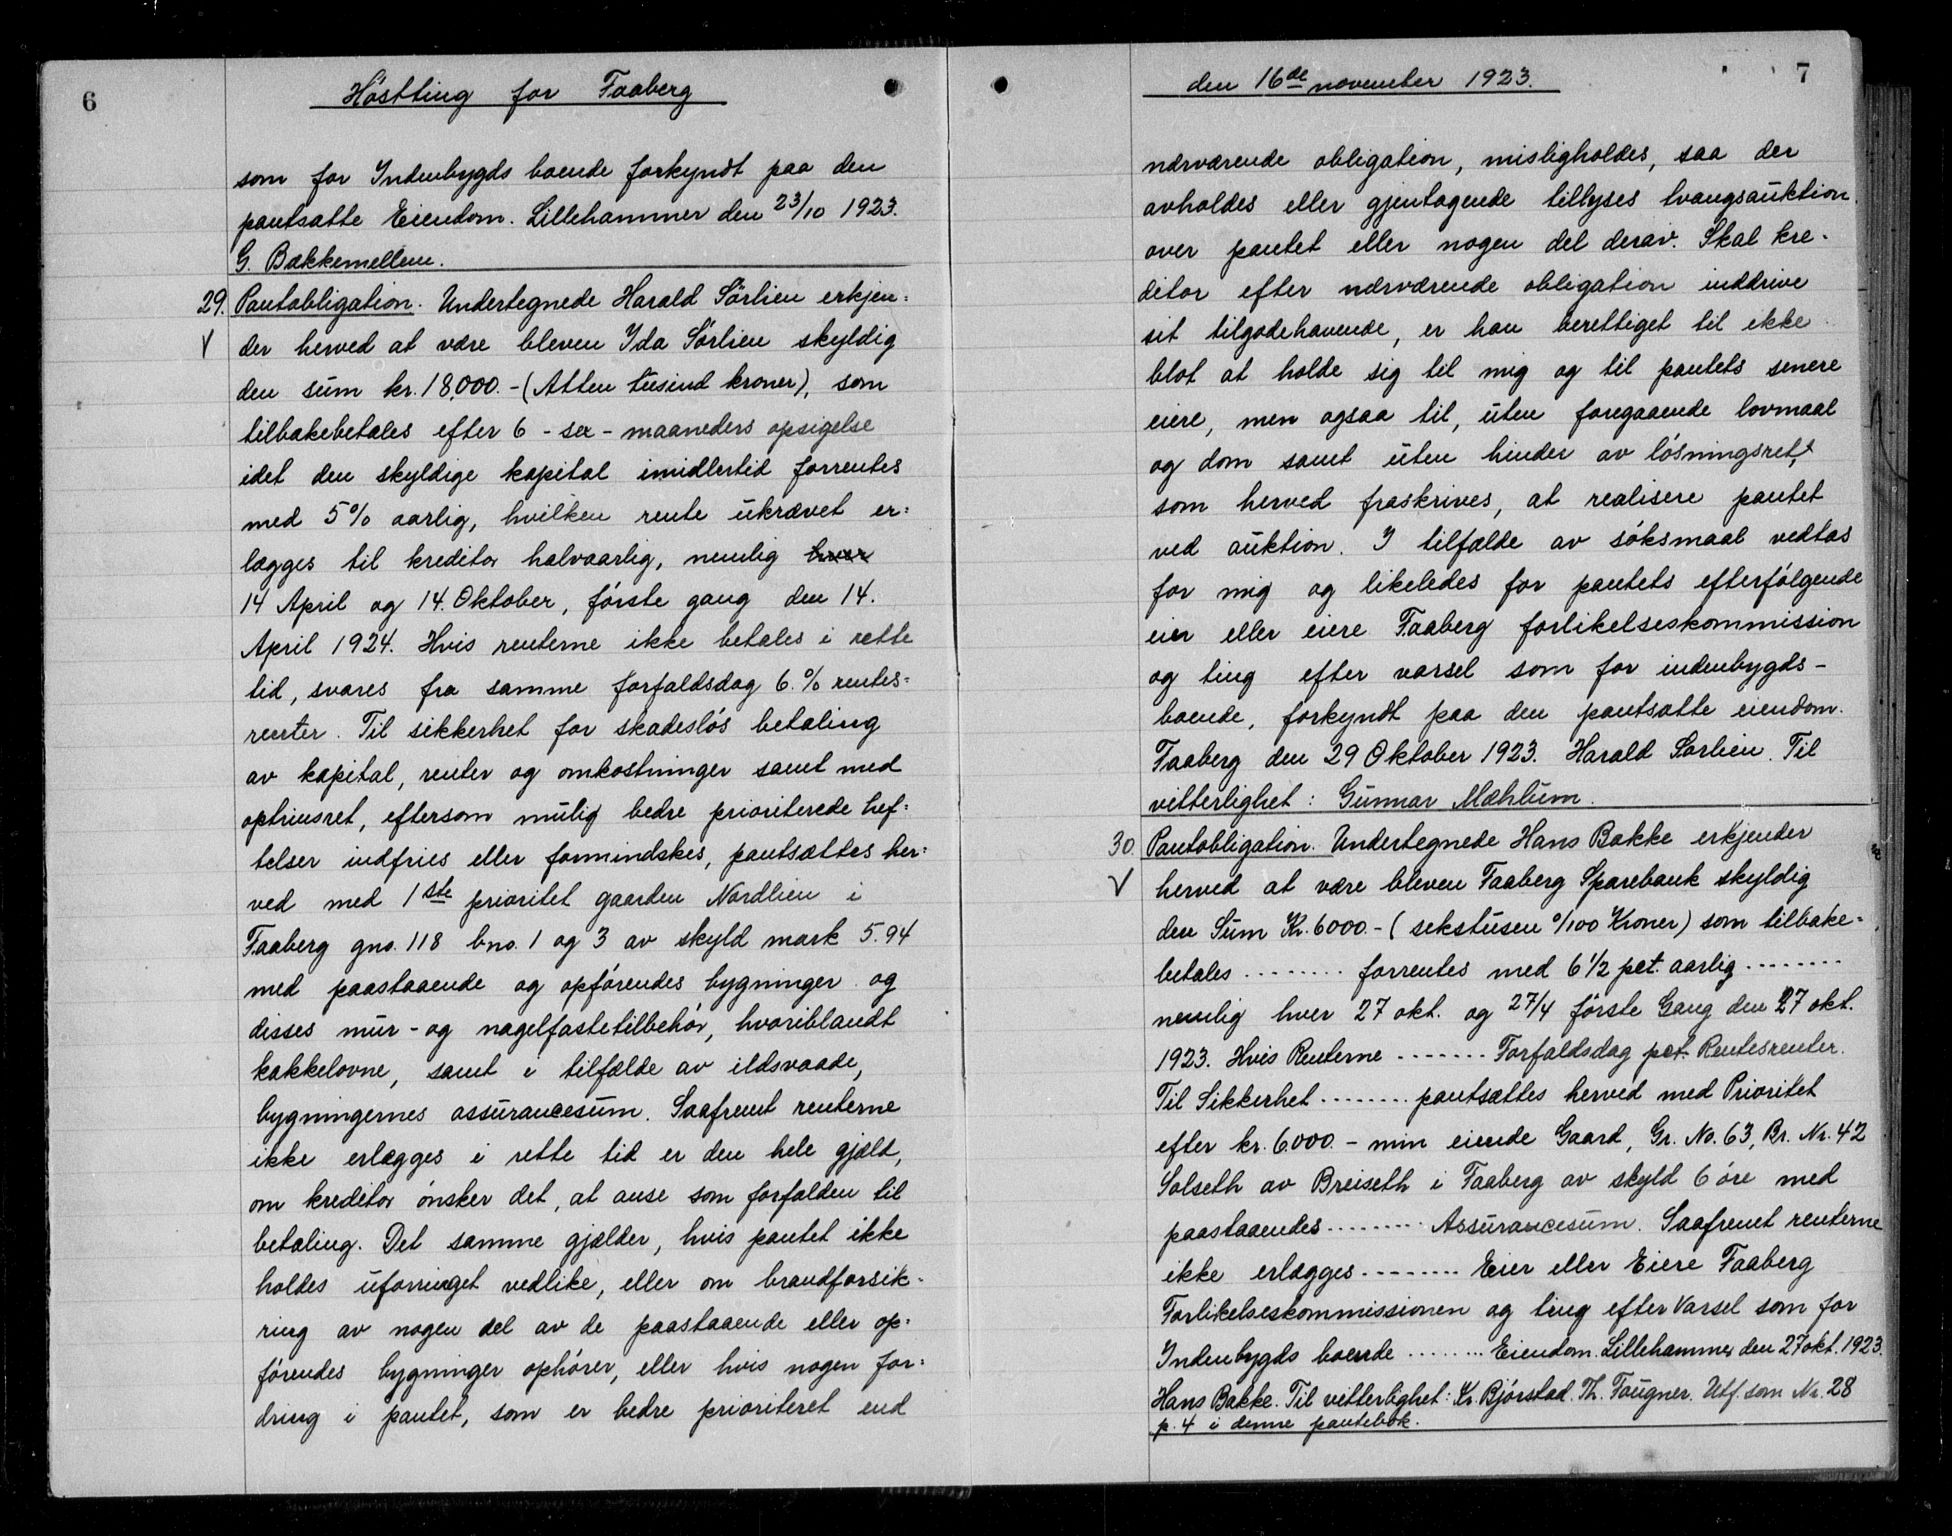 6
Höstting for Faaberg
som for Indenbygds boende forkyndt paa den
pantsatte Eiendom. Lillehammer den 23/10 1923.
G. Bækkemellem.
29. Pantobligation. Undertegnede Harald Sörlien erkjen=
der herved at være bleven Ida Sörlien skyldig
den sum kr. 18,000.- (Atten tusind kroner), som
tilbakebetales efter 6 - sex - maaneders opsigelse
idet den skyldige kapital imidlertid forrentes
med 5% aarlig, hvilken rente ukrævet er=
lægges til kreditor halvaarlig, nemlig hver
14 April og 14. Oktober, förste gang den 14.
April 1924. Hvis renterne ikke betales i rette
tid, svares fra samme forfaldsdag 6.% rentes=
renter. Til sikkerhet for skadeslös betaling
av kapital, renter og omkostninger samt med
optrinsret, eftersom mulig bedre prioriterede hef=
telser indfries eller formindskes, pantsættes her=
ved med 1ste prioritet gaarden Nordlien i
Faaberg gno. 118 bno. 1 og 3 av skyld mark 5.94
med paastaaende og opförendes bygninger og
disses mur- og nagelfaste tilbehör, hvoriblandt
kakkelovne, samt i tilfælde av ildsvaade,
bygningernes assurancesum. Saafremt renterne
ikke erlægges i rette tid er den hele gjæld,
om kreditor önsker det, at anse som forfalden til
betaling. Det samme gjælder, hvis pantet ikke
holdes uforringet vedlike, eller om brandforsik-
ring av nogen del av de paastaaende eller op=
förendes bygninger ophörer, eller hvis nogen for=
dring i pantet, som er bedre prioriteret end
den 16de november 1923.
7
nærværende obligation, misligholdes, saa der
avholdes eller gjentagende tillyses tvangsauktion
over pantet eller nogen del derav. Skal kre-
ditor efter nærværende obligation inddrive
sit tilgodehavende, er han berettiget til ikke
blot at holde sig til mig og til pantets senere
eiere, men ogsaa til, uten foregaaende lovmaal
og dom samt uten hinder av lösningsret,
som herved fraskrives, at realisere pantet
ved auktion. I tilfælde av söksmaal vedtas
for mig og likeledes for pantets efterfölgende
eier eller eiere Faaberg forlikelseskommission
og ting efter varsel som for indenbygds-
boende, forkyndt paa den pantsatte eiendom.
Faaberg den 29 Oktober 1923. Harald Sörlien. Til
vitterlighet: Gunnar Mæhlum.
30. Pantobligation. Undertegnede Hans Bakke erkjender
herved at være bleven Faaberg Sparebank skyldig
den Sum Kr. 6000.- (sekstusen 0/100 Kroner) som tilbake=
betales ........ forrentes med 6 1/2 pct. aarlig ........
nemlig hver 27 okt. og 27/4 förste Gang den 27 okt.
1923. Hvis Renterne ....... Forfaldsdag pct. Rentesrenter.
Til Sikkerhet ........ pantsættes herved med Prioritet
efter kr. 6000.- min eiende Gaard, Gr. No. 63, Br. Nr. 42
Solseth av Breiseth i Faaberg av skyld 6 öre med
paastaaendes ........ Assurancesum. Saafremt renterne
ikke erlægges ........ Eier eller Eiere Faaberg
Forlikelseskommissionen og ting efter Varsel som for
Indenbygds boende ........ Eiendom. Lillehammer den 27 okt. 1923.
Hans Bakke. Til vitterlighet: Kr. Björstad. Th. Fougner. Utf. som Nr. 28
p. 4 i denne pantebok.